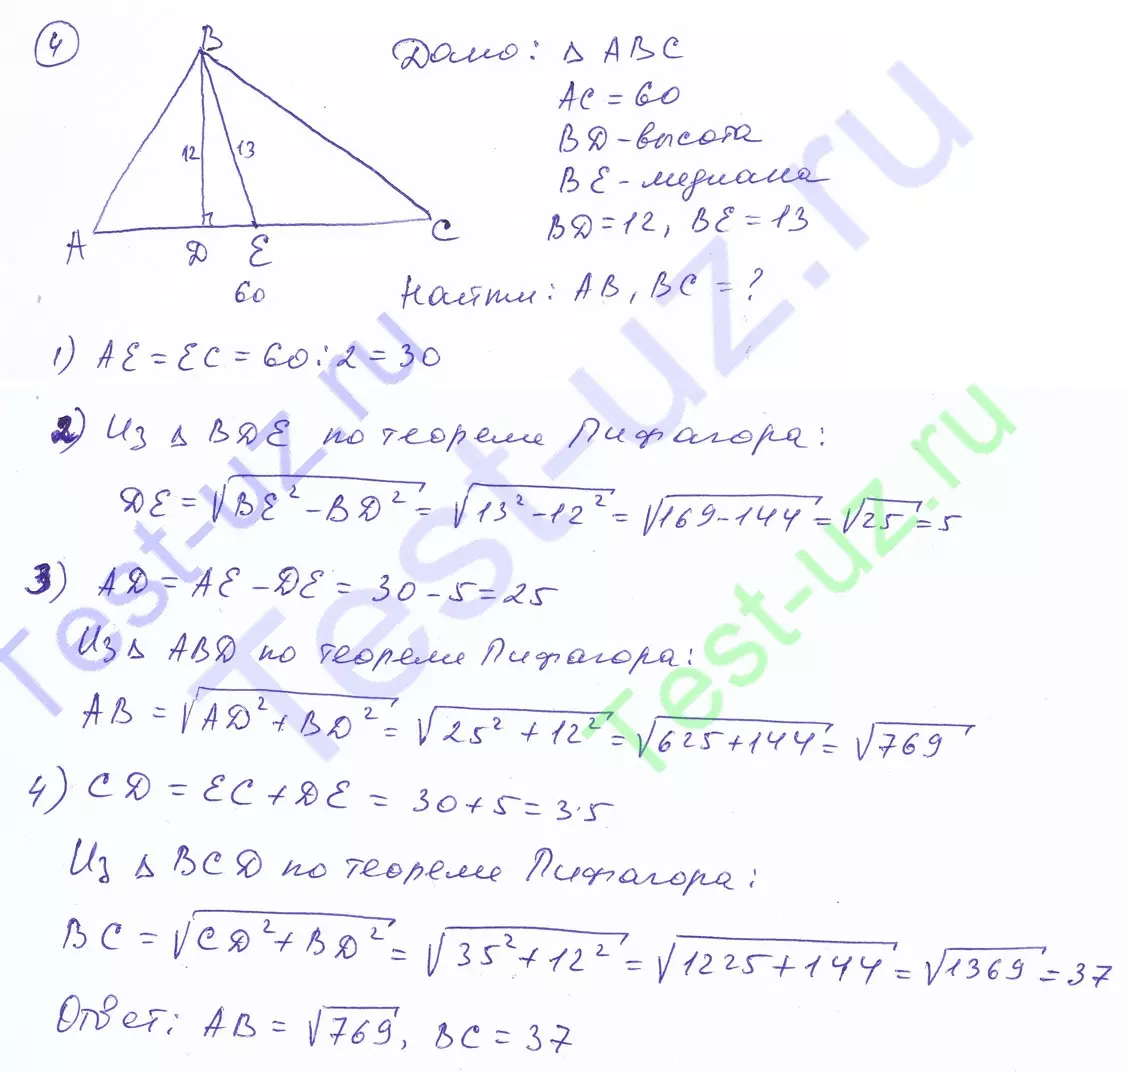 4
B
Дано: Δ ABC
AC = 60
BD - высота
12 13
BE - медиана
BD = 12, BE = 13
A D E C
60
Найти: AB, BC = ?
1) AE = EC = 60 : 2 = 30
2) Из Δ BDE по теореме Пифагора:
DE = √(BE² - BD²) = √(13² - 12²) = √(169 - 144) = √25 = 5
3) AD = AE - DE = 30 - 5 = 25
Из Δ ABD по теореме Пифагора:
AB = √(AD² + BD²) = √(25² + 12²) = √(625 + 144) = √769
4) CD = EC + DE = 30 + 5 = 35
Из Δ BCD по теореме Пифагора:
BC = √(CD² + BD²) = √(35² + 12²) = √(1225 + 144) = √1369 = 37
Ответ: AB = √769, BC = 37
Test-uz.ru
Test-uz.ru
Test-uz.ru